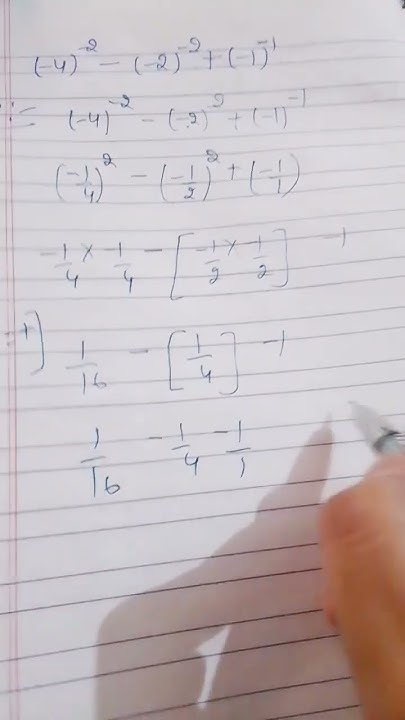 (-4)^-2 - (-2)^-2 + (-1)^-1
:= (-4)^-2 - (-2)^-2 + (-1)^-1
(-1/4)^2 - (-1/2)^2 + (-1/1)
-1/4 × -1/4 - [-1/2 × -1/2] -1
=+) 1/16 - [1/4] -1
1/16 -1/4 -1/1